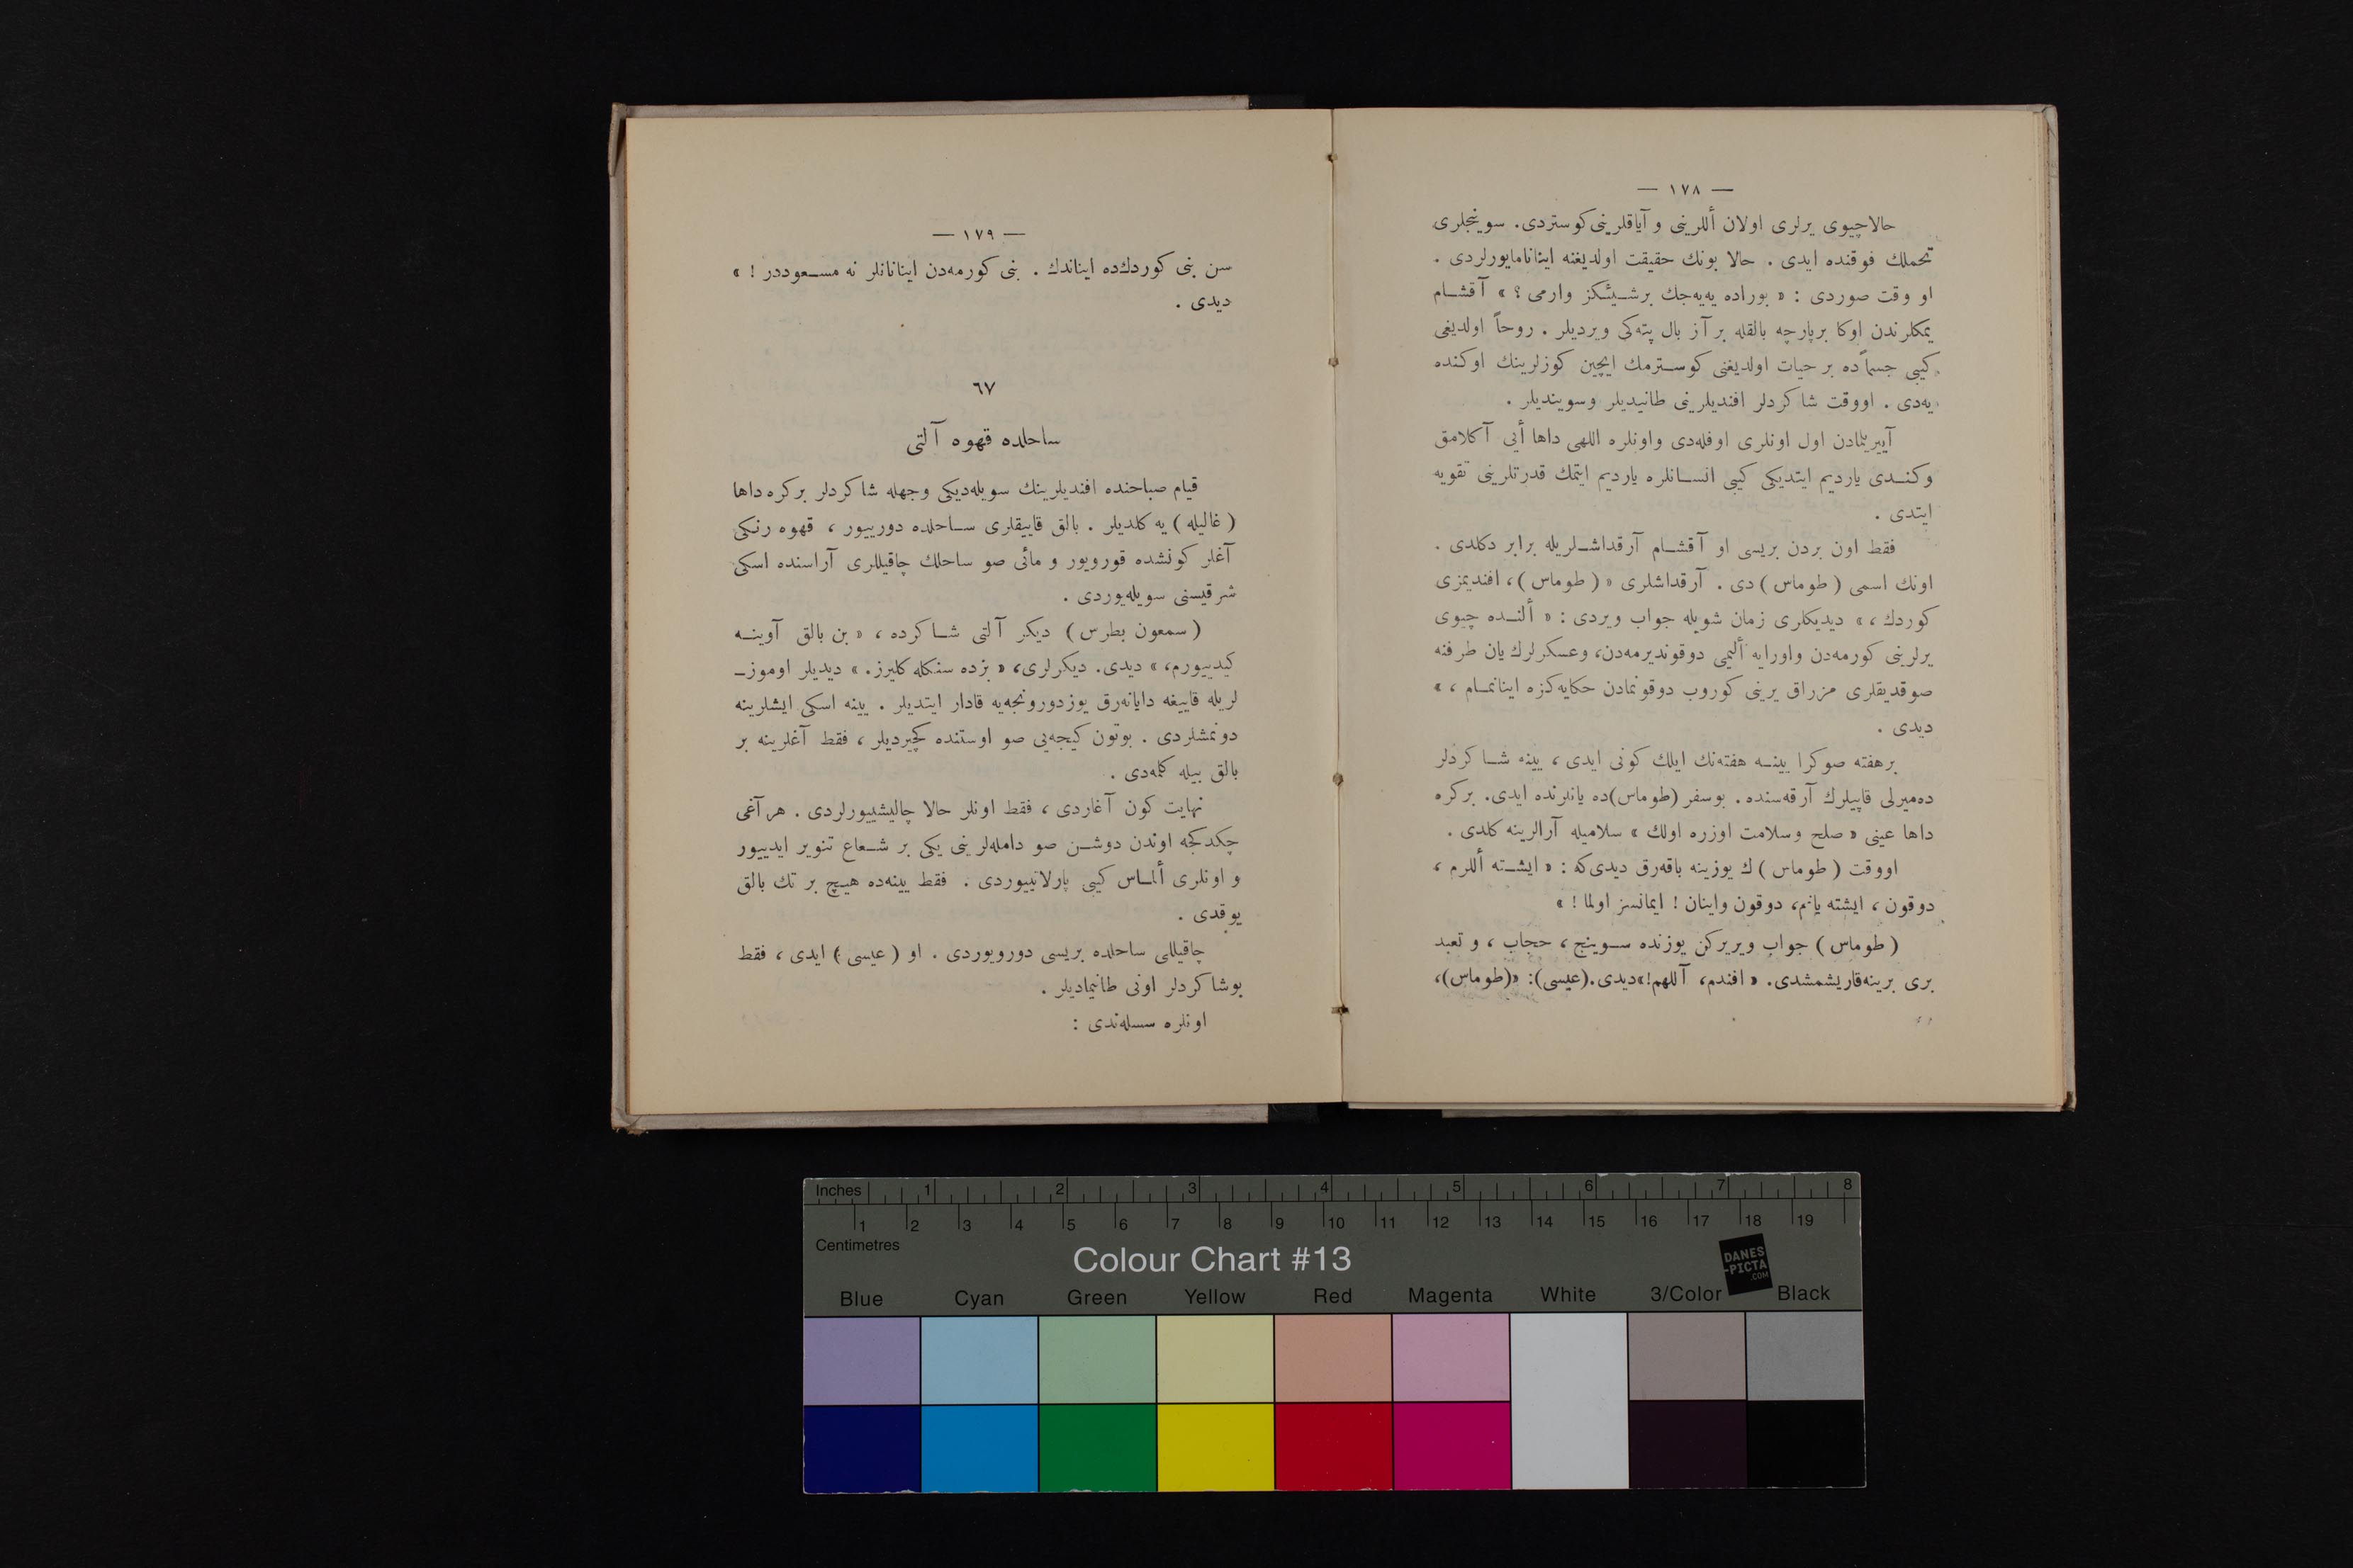 — ١٧٨ —
حالاچیوی یرلری اولان أللرینی و آیاقلرینی کوستردی. سوینجلری
تحملك فوقنده ایدی . حالا بونك حقیقت اولدیغنه اینانامایورلردی .
او وقت صوردی : « بوراده یه‌یه‌جك برشیئكز وارمی ؟ » آقشام
یمكلرندن اوكا برپارچه بالقله بر آز بال پته‌كی ویردیلر . روحاً اولدیغی
كبی جسماًده بر حیات اولدیغنی كوسترمك ایچین كوزلرینك اوكنده
یه‌دی . اووقت شاكردلر افندیلرینی طانیدیلر وسویندیلر .
آییریلمادن اول اونلری اوفله‌دی واونلره اللهی داها أیی آكلامق
وكندی یاردیم ایتدیكی كبی انسانلره یاردیم ایتمك قدرتلرینی تقویه
ایتدی .
فقط اون بردن بریسی او آقشام آرقداشلریله برابر دكلدی .
اونك اسمی ( طوماس ) دی . آرقداشلری « ( طوماس ) ، افندیمزی
كوردك ، » دیدیكلری زمان شویله جواب ویردی : « ألنده چیوی
یرلرینی كورمه‌دن واورایه ألیمی دوقوندیرمه‌دن، وعسكرلرك یان طرفنه
صوقدیقلری مزراق یرینی كوروب دوقونمادن حكایه‌كزه اینانمام ، »
دیدی .
برهفته صوكرا یینه هفته‌نك ایلك كونی ایدی ، یینه شاكردلر
ده‌میرلی قاپیلرك آرقه‌سنده . بوسفر (طوماس)ده یانلرنده ایدی. بركره
داها عینی « صلح وسلامت اوزره اولك » سلامیله آرالرینه كلدی .
اووقت ( طوماس ) ك یوزینه باقه‌رق دیدی‌كه : « ایشته أللرم ،
دوقون ، ایشته یانم، دوقون واینان ! ایمانسز اولما ! »
( طوماس ) جواب ویریركن یوزنده سوینج ، حجاب ، و تعبد
بری برینه‌قاریشمشدی. « افندم، آللهم!»دیدی.(عیسی): «(طوماس)،
— ١٧٩ —
سن بنی كوردك‌ده ایناندك . بنی كورمه‌دن اینانانلر نه مسعوددر ! »
دیدی .
٦٧
ساحلده قهوه آلتی
قیام صباحنده افندیلرینك سویله‌دیكی وجهله شاكردلر بركره داها
( غالیله ) یه كلدیلر . بالق قاییقلری ساحلده دورییور ، قهوه رنكی
آغلر كونشده قورویور و مائی صو ساحلك چاقیللری آراسنده اسكی
شرقیسنی سویله‌یوردی .
( سمعون بطرس ) دیكر آلتی شاكرده ، « بن بالق آوینه
كیدییورم، » دیدی. دیكرلری، « بزده سنكله كلیرز. » دیدیلر اوموز-
لریله قاییغه دایانه‌رق یوزدورونجه‌یه قادار ایتدیلر . یینه اسكی ایشلرینه
دونمشلردی . بوتون كیجه‌یی صو اوستنده كچیردیلر ، فقط آغلرینه بر
بالق بیله كلمه‌دی .
نهایت كون آغاردی ، فقط اونلر حالا چالیشییورلردی . هر آغی
چكدكجه اوندن دوشن صو دامله‌لرینی یكی بر شعاع تنویر ایدییور
و اونلری ألماس كبی پارلانییوردی . فقط یینه‌ده هیچ بر تك بالق
یوقدی .
چاقیللی ساحلده بریسی دورویوردی . او ( عیسی ) ایدی ، فقط
بوشاكردلر اونی طانیمادیلر .
اونلره سسله‌ندی :
Inches 1 2 3 4 5 6 7 8
1 2 3 4 5 6 7 8 9 10 11 12 13 14 15 16 17 18 19
Centimetres
Colour Chart #13
DANES
-PICTA
.COM
Blue Cyan Green Yellow Red Magenta White 3/Color Black